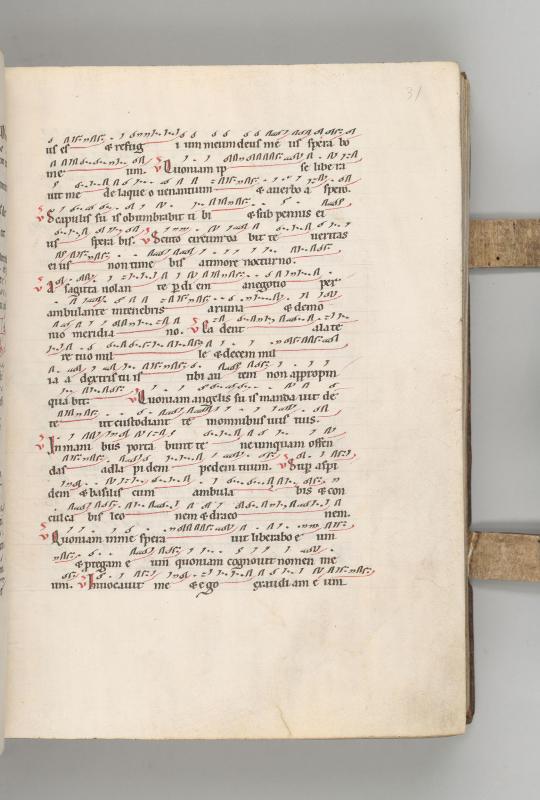 31
us es & refug i um meum deus me us spera bo
me um. ℣ Quoniam ip se libe ra
uit me de laque o uenantium & a uerbo a spero.
℣ Scapulis su is obumbrabit ti bi & sub pennis ei
us spera bis. ℣ Scuto circum da bit te ueritas
ei us non time bis a timore nocturno.
℣ A sagitta uolan te p di em a negotio per
ambulante in tenebris a ruina & demo
nio meridia no. ℣ Ca dent a la te
re tuo mil le & decem mil
ia a dextris tu is tibi au tem non appropin
qua bit: ℣ Quoniam angelis su is manda uit de
te ut custodiant te in omnibus uiis tuis.
℣ In mani bus porta bunt te ne umquam offen
das ad la pi dem pedem tuum. ℣ Sup aspi
dem & basilis cum ambula bis & con
culca bis leo nem & draco nem.
℣ Quoniam in me spera uit liberabo e um
& pregam e um quoniam cognouit nomen me
um. ℣ Inuocauit me & ego exaudi am e um